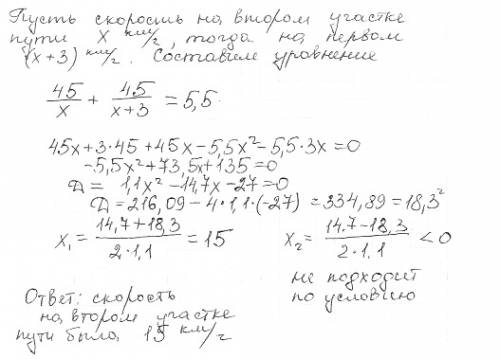 Пусть скорость на втором участке
пути x км/г, тогда на первом
(x+3) км/г. Составим уравнение
45/x + 45/(x+3) = 5,5
45x+3·45+45x-5,5x²-5,5·3x=0
-5,5x²+73,5x+135=0
Д= 1,1x²-14,7x-27=0
Д=216,09-4·1,1·(-27)=334,89=18,3²
x₁= (14,7+18,3)/(2·1,1) =15 x₂= (14,7-18,3)/(2·1,1) <0
не подходит
по условию
Ответ: скорость
на втором участке
пути была 15 км/г